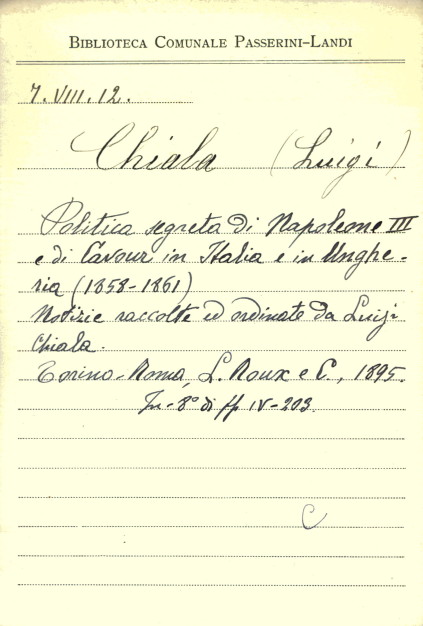 BIBLIOTECA COMUNALE PASSERINI-LANDI
7.VIII.12.
Chiala (Luigi)
Politica segreta di Napoleone III
e di Cavour in Italia e in Unghe-
ria (1858-1861)
Notizie raccolte ed ordinate da Luigi
Chiala.
Torino-Roma, L. Roux e C., 1895.
In-8° di pp IV-203.
C